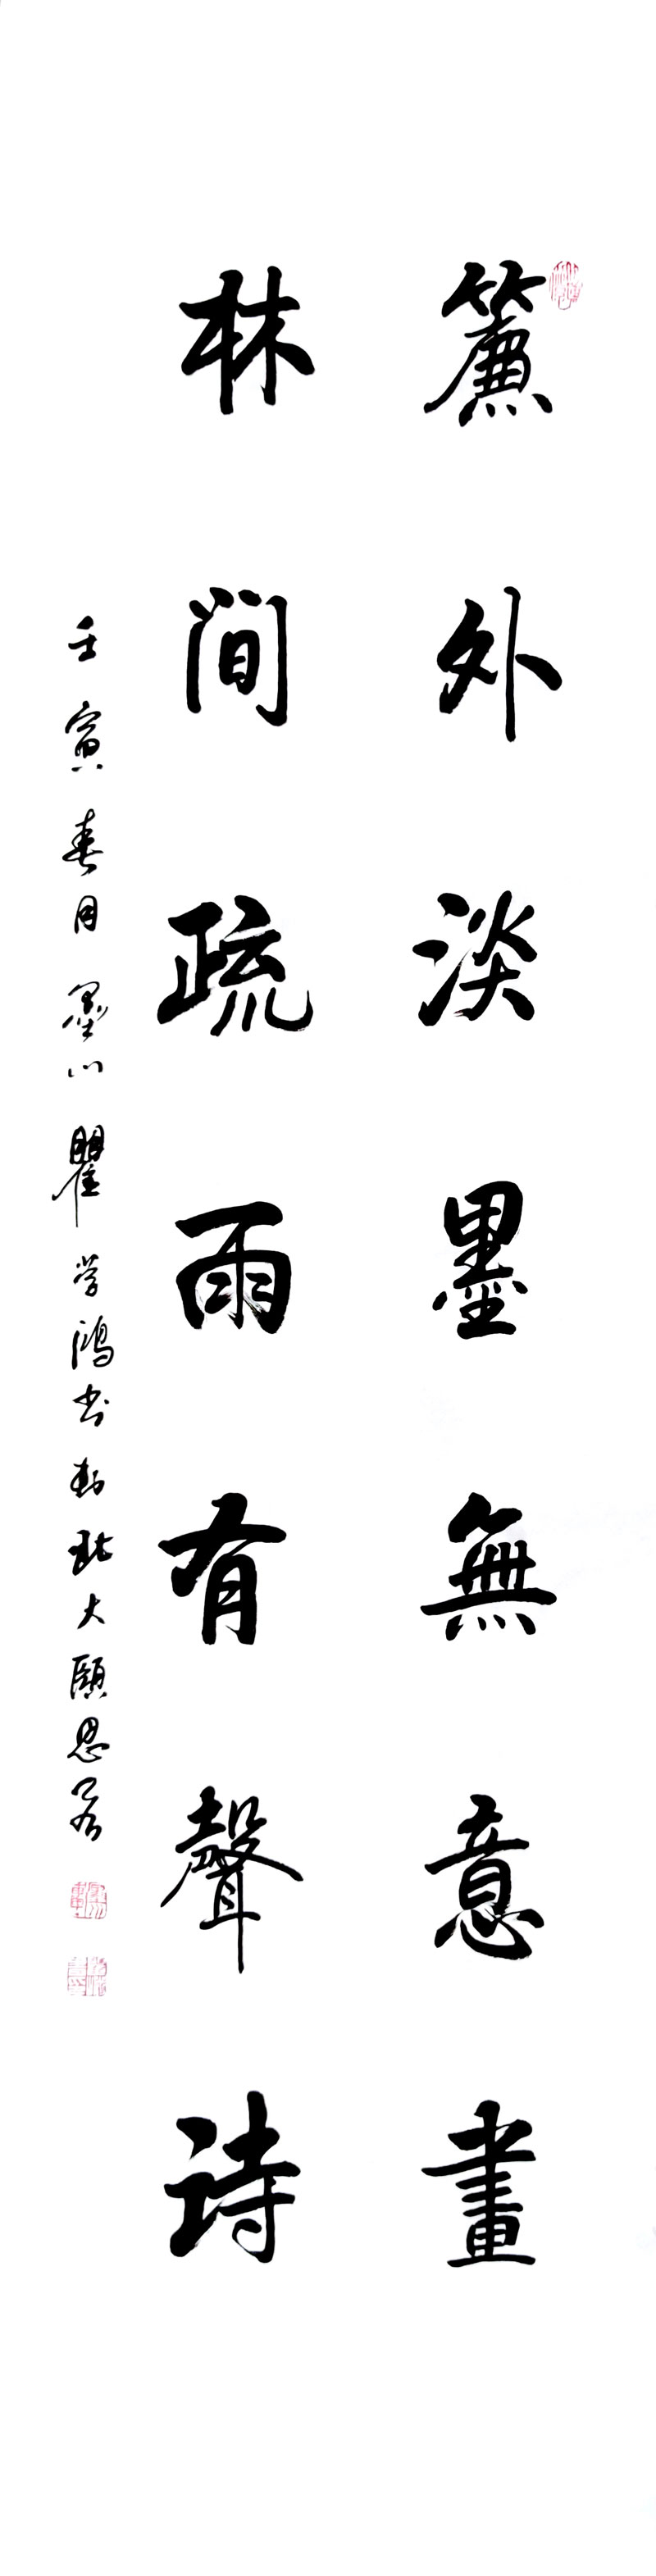 簾外淡墨無意畫
林间疏雨有聲诗
壬寅春月墨山瞿学鸿书於北大頤思